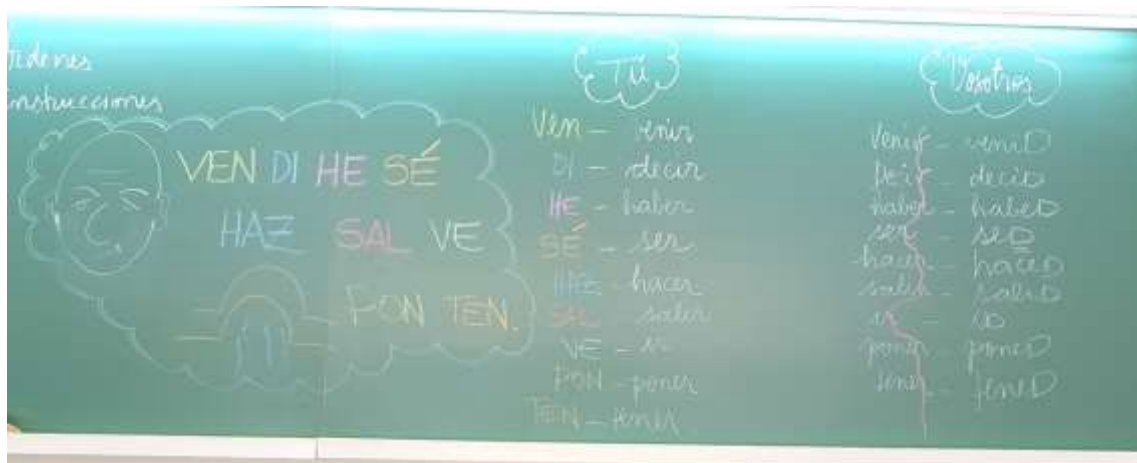 Órdenes
instrucciones
VEN DI HE SÉ
HAZ SAL VE
PON TEN.
Tú
Ven - venir
DI - decir
HE - haber
SÉ - ser
HAZ - hacer
SAL - salir
VE - ir
PON - poner
TEN - tener
Vosotros
venir - veniD
decir - deciD
haber - habeD
ser - seD
hacer - haceD
salir - saliD
ir - iD
poner - poneD
tener - teneD